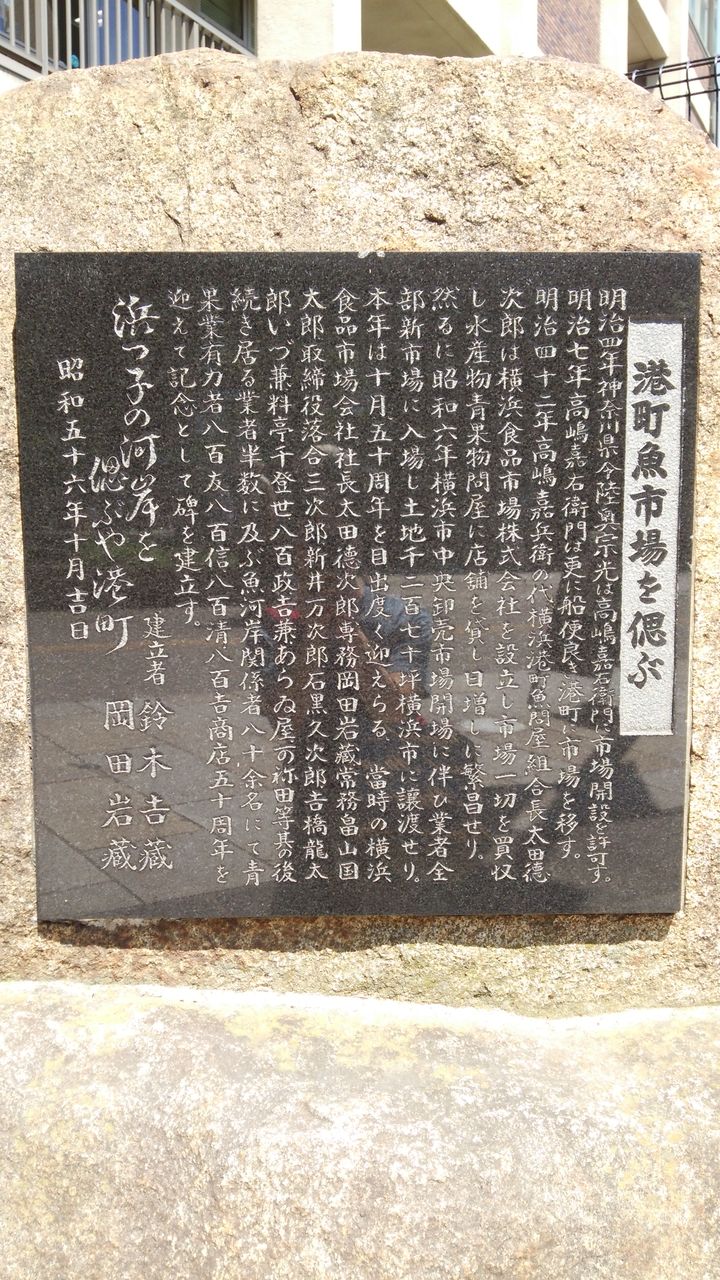 港町魚市場を偲ぶ
明治四年神奈川県令陸奥宗光は高嶋嘉右衛門に市場開設を許可す。
明治七年高嶋嘉右衛門は更に船便良き港町に市場を移す。
明治四十二年高嶋嘉兵衛の代横浜港町魚問屋組合長太田徳
次郎は横浜食品市場株式会社を設立し市場一切を買収
し水産物青果物問屋に店舗を貸し日増しに繁昌せり。
然るに昭和六年横浜市中央卸売市場開場に伴ひ業者全
部新市場に入場し土地千二百七十坪横浜市に譲渡せり。
本年は十月五十周年を目出度く迎えらる、當時の横浜
食品市場会社社長太田徳次郎専務岡田岩藏常務畠山国
太郎取締役落合三次郎新井万次郎石黒久次郎吉橋龍太
郎いづ兼料亭千登世八百政吉兼あらゐ屋一の祢田等其の後
続き居る業者半数に及ぶ魚河岸関係者八十余名にて青
果業有力者八百友八百信八百清八百吉商店五十周年を
迎えて記念として碑を建立す。
建立者 鈴木吉藏
岡田岩藏
浜つ子の河岸を
偲ぶや港町
昭和五十六年十月吉日